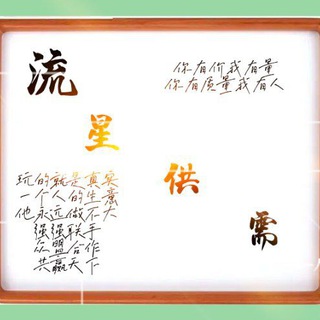 流
星
供
需
你有价我有量
你有质量我有人
玩的就是真实
一个人的生意
他永远做不大
强强联手
众盟合作
共赢天下